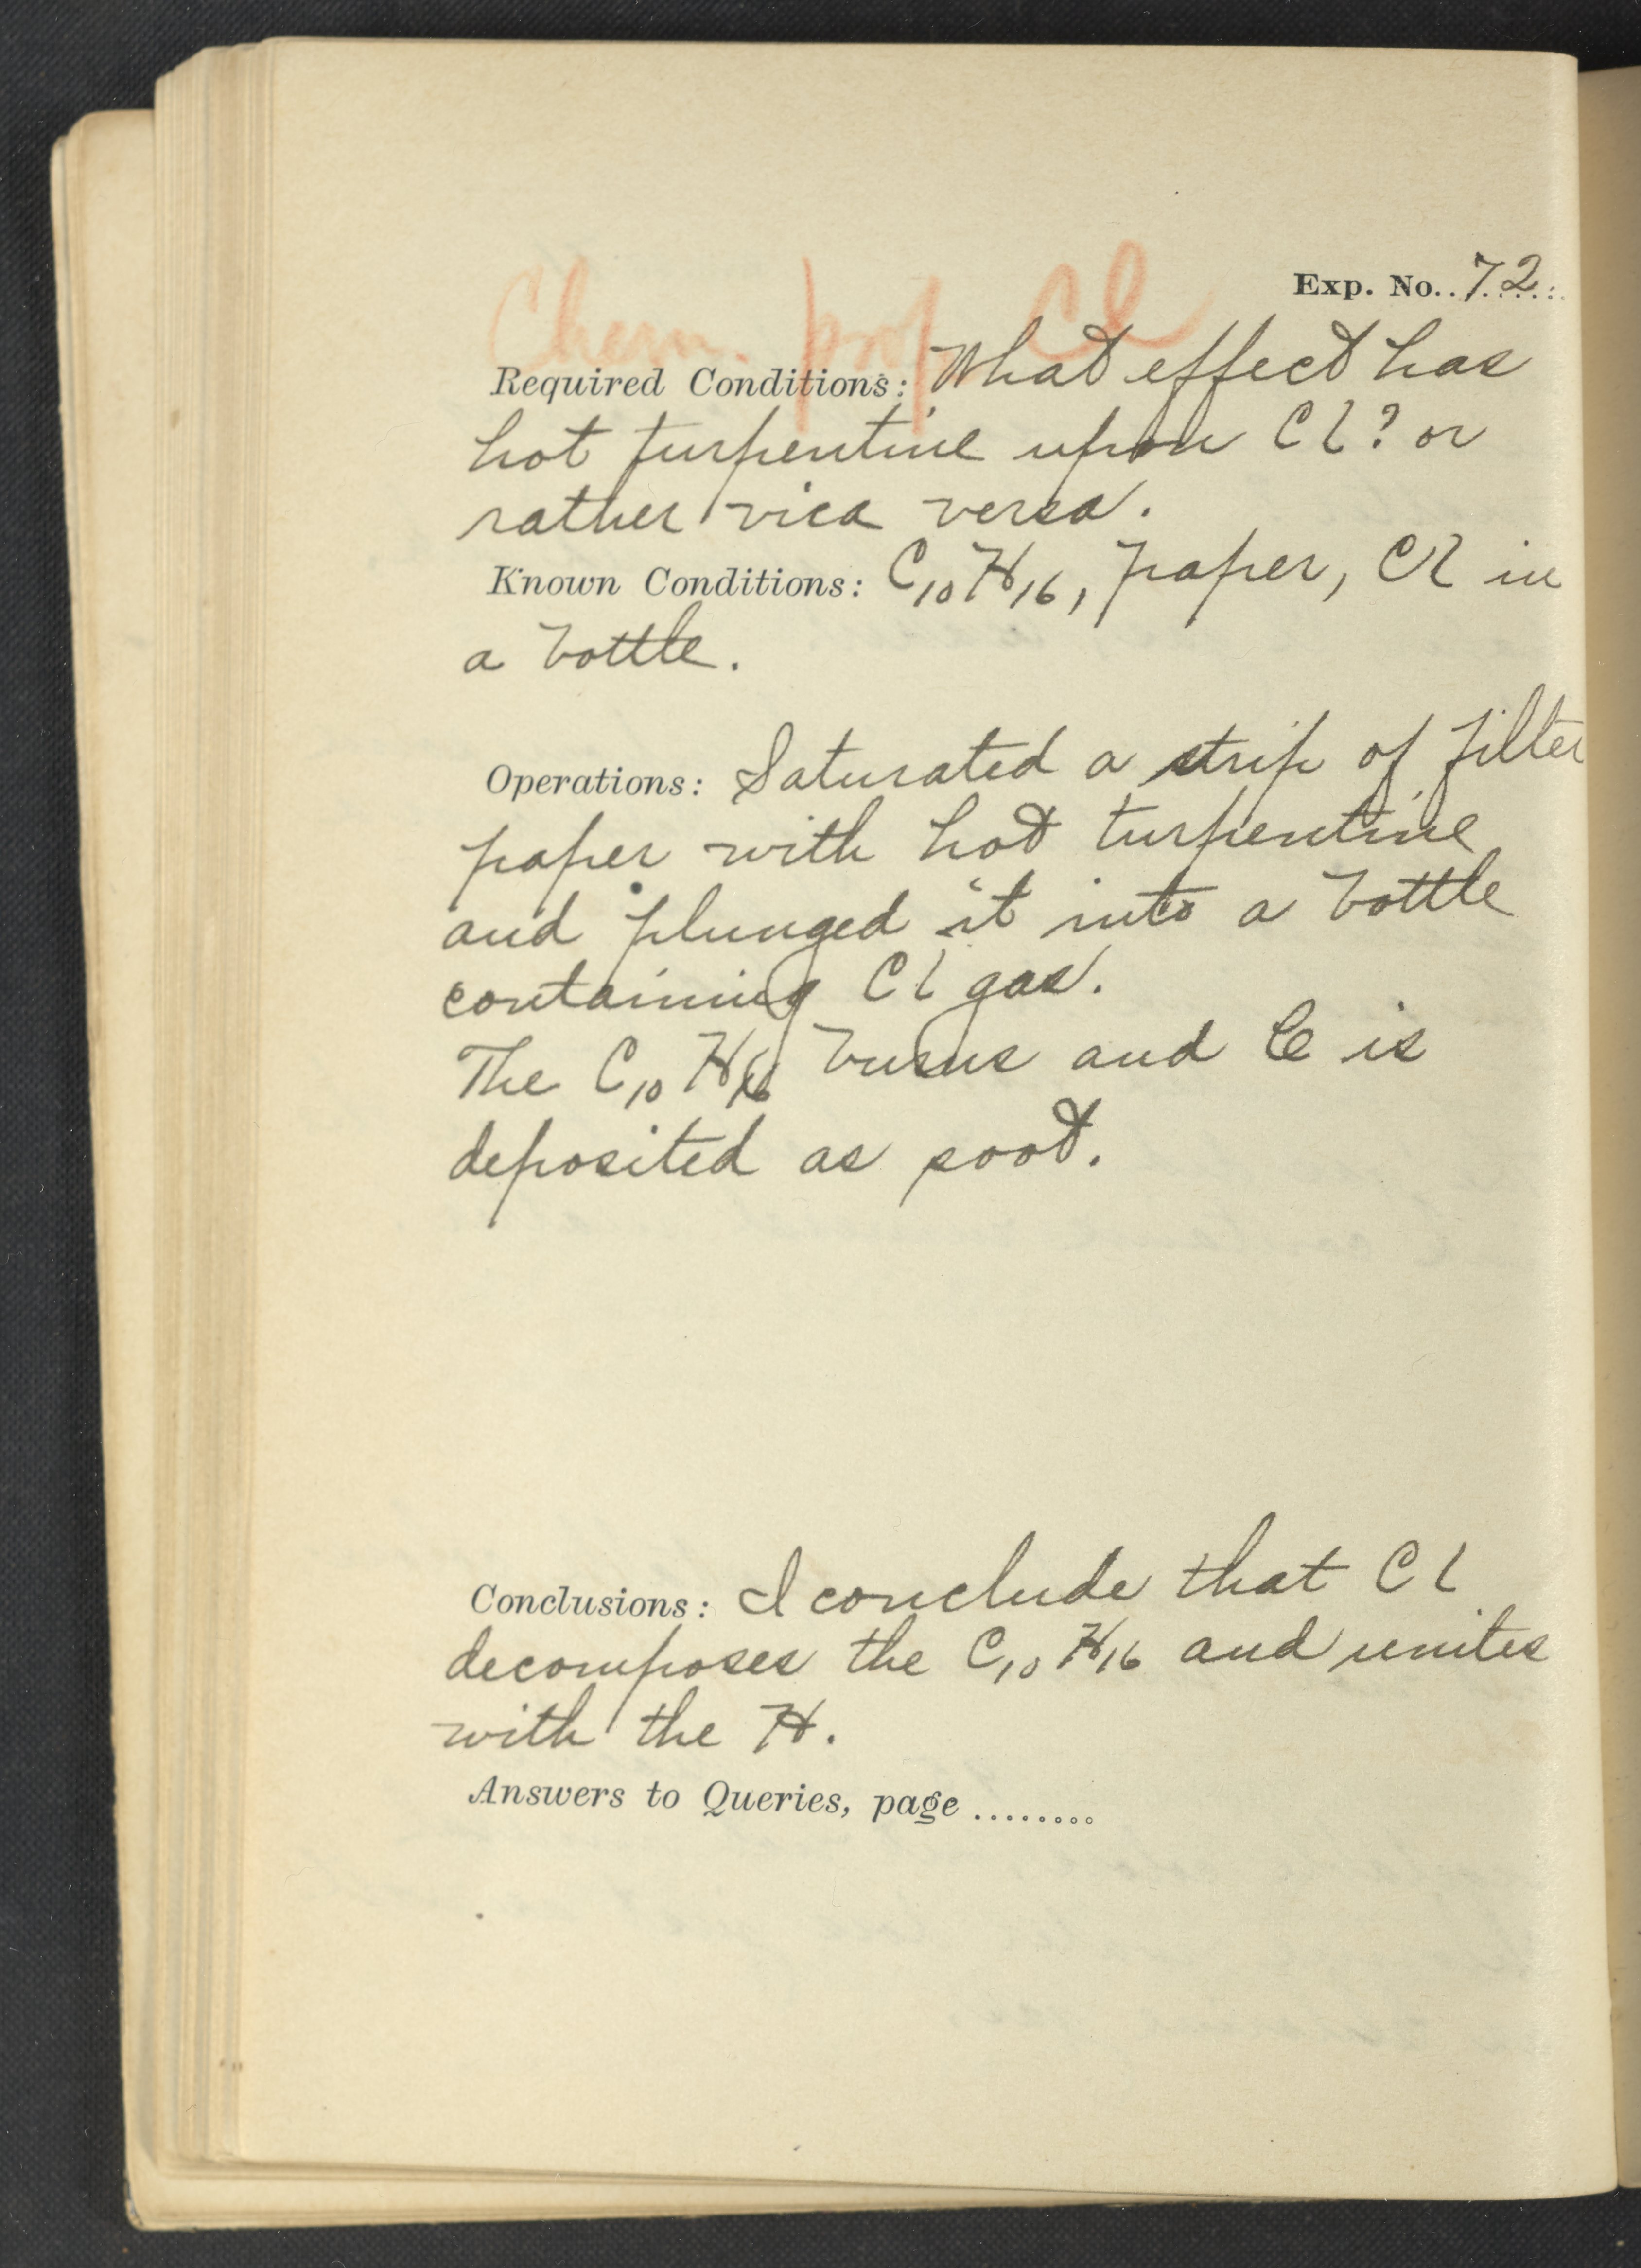 Exp. No. 72
Chem. prop Cl
Required Conditions: What effect has
hot turpentine upon Cl? or
rather vica versa.
Known Conditions: C10H16, paper, Cl in
a bottle.
Operations: Saturated a strip of filter
paper with hot turpentine
and plunged it into a bottle
containing Cl gas.
The C10H16 burns and C is
deposited as soot.
Conclusions: I conclude that Cl
decomposes the C10H16 and unites
with the H.
Answers to Queries, page ........